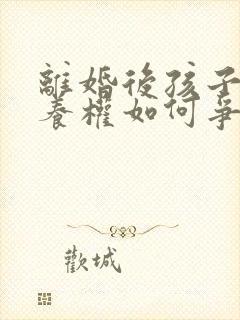 離婚後孩子
養權如何爭
歡城